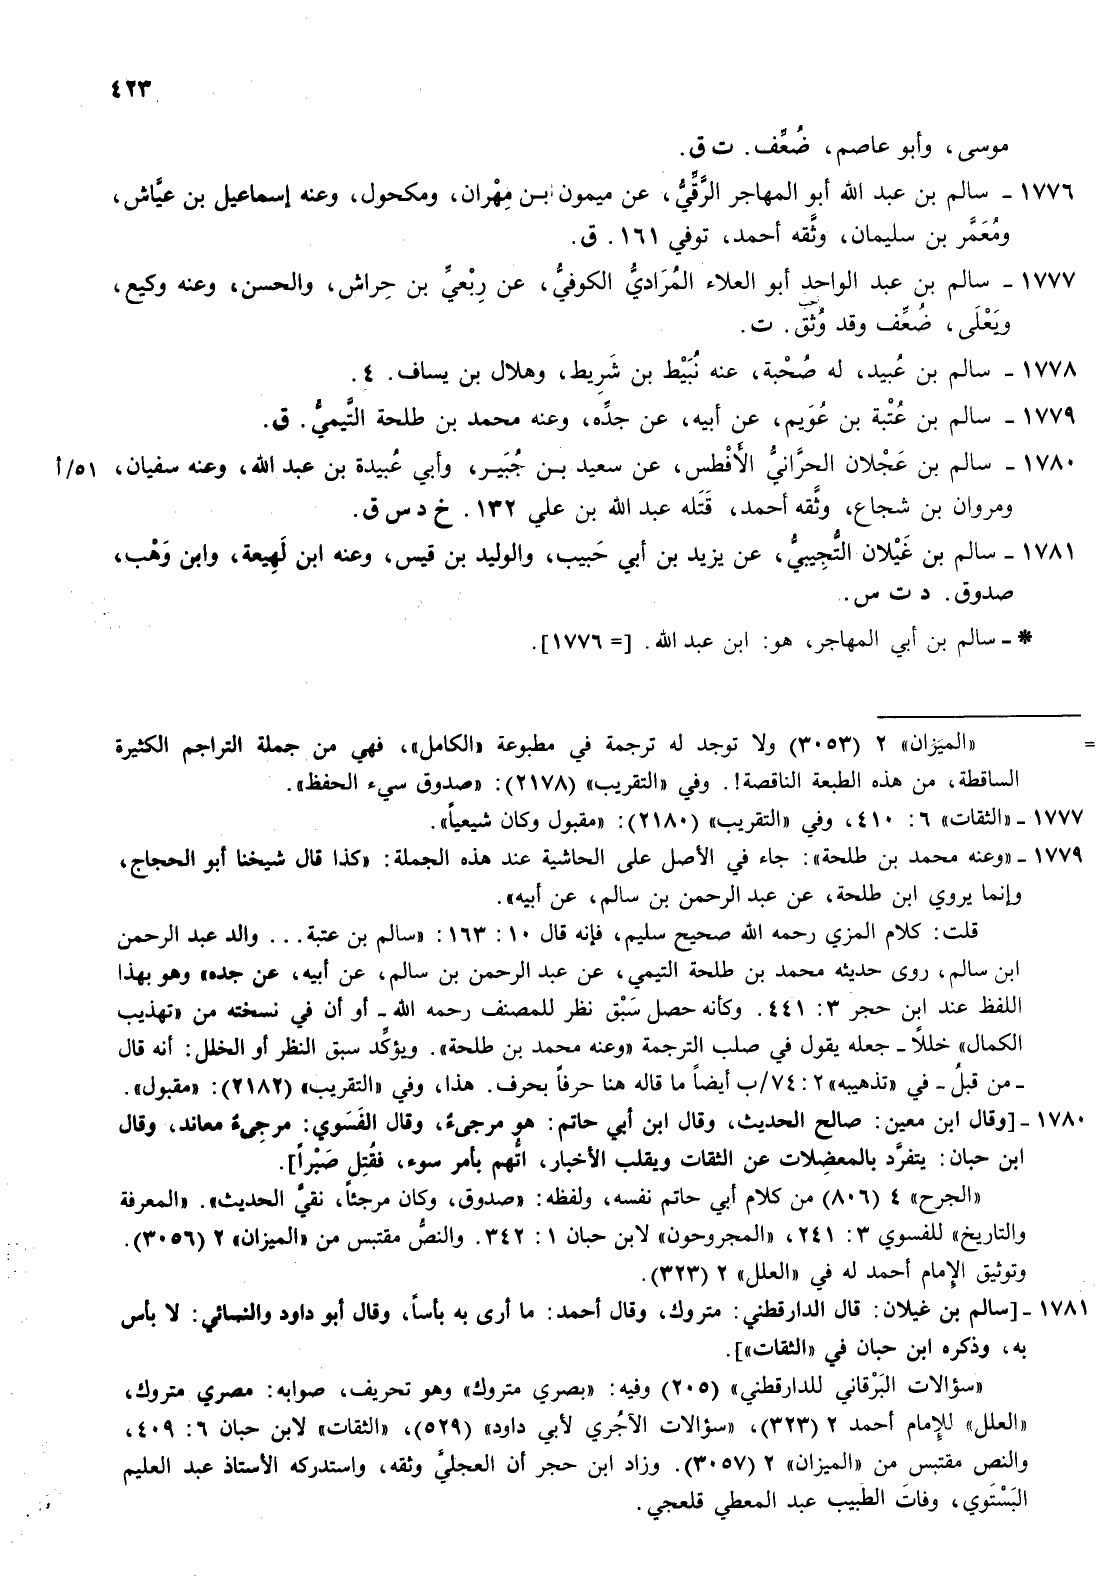 ٤٢٣
موسى، وأبو عاصم، ضُعِّف. ت ق.
١٧٧٦ ـ سالم بن عبد الله أبو المهاجر الرَّقِّيُّ، عن ميمون بـن مِهْران، ومكحول، وعنه إسماعيل بن عيَّاش،
ومُعَمَّر بن سليمان، وثَّقه أحمد، توفي ١٦١. ق.
١٧٧٧ ـ سالم بن عبد الواحد أبو العلاء المُرَاديُّ الكوفيُّ، عن رِبْعيِّ بن حِراش، والحسن، وعنه وكيع،
ويَعْلَى، ضُعِّف وقد وُثِّق. ت.
١٧٧٨ ـ سالم بن عُبيد، له صُحْبة، عنه نُبَيْط بن شَرِيط، وهلال بن يساف. ٤.
١٧٧٩ ـ سالم بن عُتْبة بن عُوَيم، عن أبيه، عن جدِّه، وعنه محمد بن طلحة التَّيميُّ. ق.
١٧٨٠ ـ سالم بن عَجْلان الحرَّانيُّ الأَفْطس، عن سعيد بـن جُبَيـر، وأبي عُبيدة بن عبد الله، وعنه سفيان، ٥١/أ
ومروان بن شجاع، وثَّقه أحمد، قَتَله عبد الله بن علي ١٣٢. خ د س ق.
١٧٨١ ـ سالم بن غَيْلان التُّجِيبيُّ، عن يزيد بن أبي حَبيب، والوليد بن قيس، وعنه ابن لَهِيعة، وابن وَهْب،
صدوق. د ت س.
* ـ سالم بن أبي المهاجر، هو: ابن عبد الله. [= ١٧٧٦].
= «الميزان» ٢ (٣٠٥٣) ولا توجد له ترجمة في مطبوعة «الكامل»، فهي من جملة التراجم الكثيرة
الساقطة، من هذه الطبعة الناقصة!. وفي «التقريب» (٢١٧٨): «صدوق سيء الحفظ».
١٧٧٧ ـ «الثقات» ٦: ٤١٠، وفي «التقريب» (٢١٨٠): «مقبول وكان شيعياً».
١٧٧٩ ـ «وعنه محمد بن طلحة»: جاء في الأصل على الحاشية عند هذه الجملة: «كذا قال شيخنا أبو الحجاج،
وإنما يروي ابن طلحة، عن عبد الرحمن بن سالم، عن أبيه».
قلت: كلام المزي رحمه الله صحيح سليم، فإنه قال ١٠: ١٦٣: «سالم بن عتبة... والد عبد الرحمن
ابن سالم، روى حديثه محمد بن طلحة التيمي، عن عبد الرحمن بن سالم، عن أبيه، عن جده» وهو بهذا
اللفظ عند ابن حجر ٣: ٤٤١. وكأنه حصل سَبْق نظر للمصنف رحمه الله ـ أو أن في نسخته من «تهذيب
الكمال» خللاً ـ جعله يقول في صلب الترجمة «وعنه محمد بن طلحة». ويؤكِّد سبق النظر أو الخلل: أنه قال
ـ من قبلُ ـ في «تذهيبه» ٢: ٧٤/ب أيضاً ما قاله هنا حرفاً بحرف. هذا، وفي «التقريب» (٢١٨٢): «مقبول».
١٧٨٠ ـ [وقال ابن معين: صالح الحديث، وقال ابن أبي حاتم: هو مرجىء، وقال الفَسَوي: مرجىءٌ معاند، وقال
ابن حبان: يتفرَّد بالمعضلات عن الثقات ويقلب الأخبار، اتُّهم بأمر سوء، فقُتِل صَبْراً].
«الجرح» ٤ (٨٠٦) من كلام أبي حاتم نفسه، ولفظه: «صدوق، وكان مرجئاً، نقيَّ الحديث». «المعرفة
والتاريخ» للفسوي ٣: ٢٤١، «المجروحون» لابن حبان ١: ٣٤٢. والنصُّ مقتبس من «الميزان» ٢ (٣٠٥٦).
وتوثيق الإمام أحمد له في «العلل» ٢ (٣٢٣).
١٧٨١ ـ [سالم بن غيلان: قال الدارقطني: متروك، وقال أحمد: ما أرى به بأساً، وقال أبو داود والنسائي: لا بأس
به، وذكره ابن حبان في «الثقات»].
«سؤالات البَرْقاني للدارقطني» (٢٠٥) وفيه: «بصري متروك» وهو تحريف، صوابه: مصري متروك،
«العلل» للإمام أحمد ٢ (٣٢٣)، «سؤالات الآجُري لأبي داود» (٥٢٩)، «الثقات» لابن حبان ٦: ٤٠٩،
والنص مقتبس من «الميزان» ٢ (٣٠٥٧). وزاد ابن حجر أن العجليَّ وثقه، واستدركه الأستاذ عبد العليم
البَسْتَوي، وفاتَ الطَبيب عبد المعطي قلعجي.